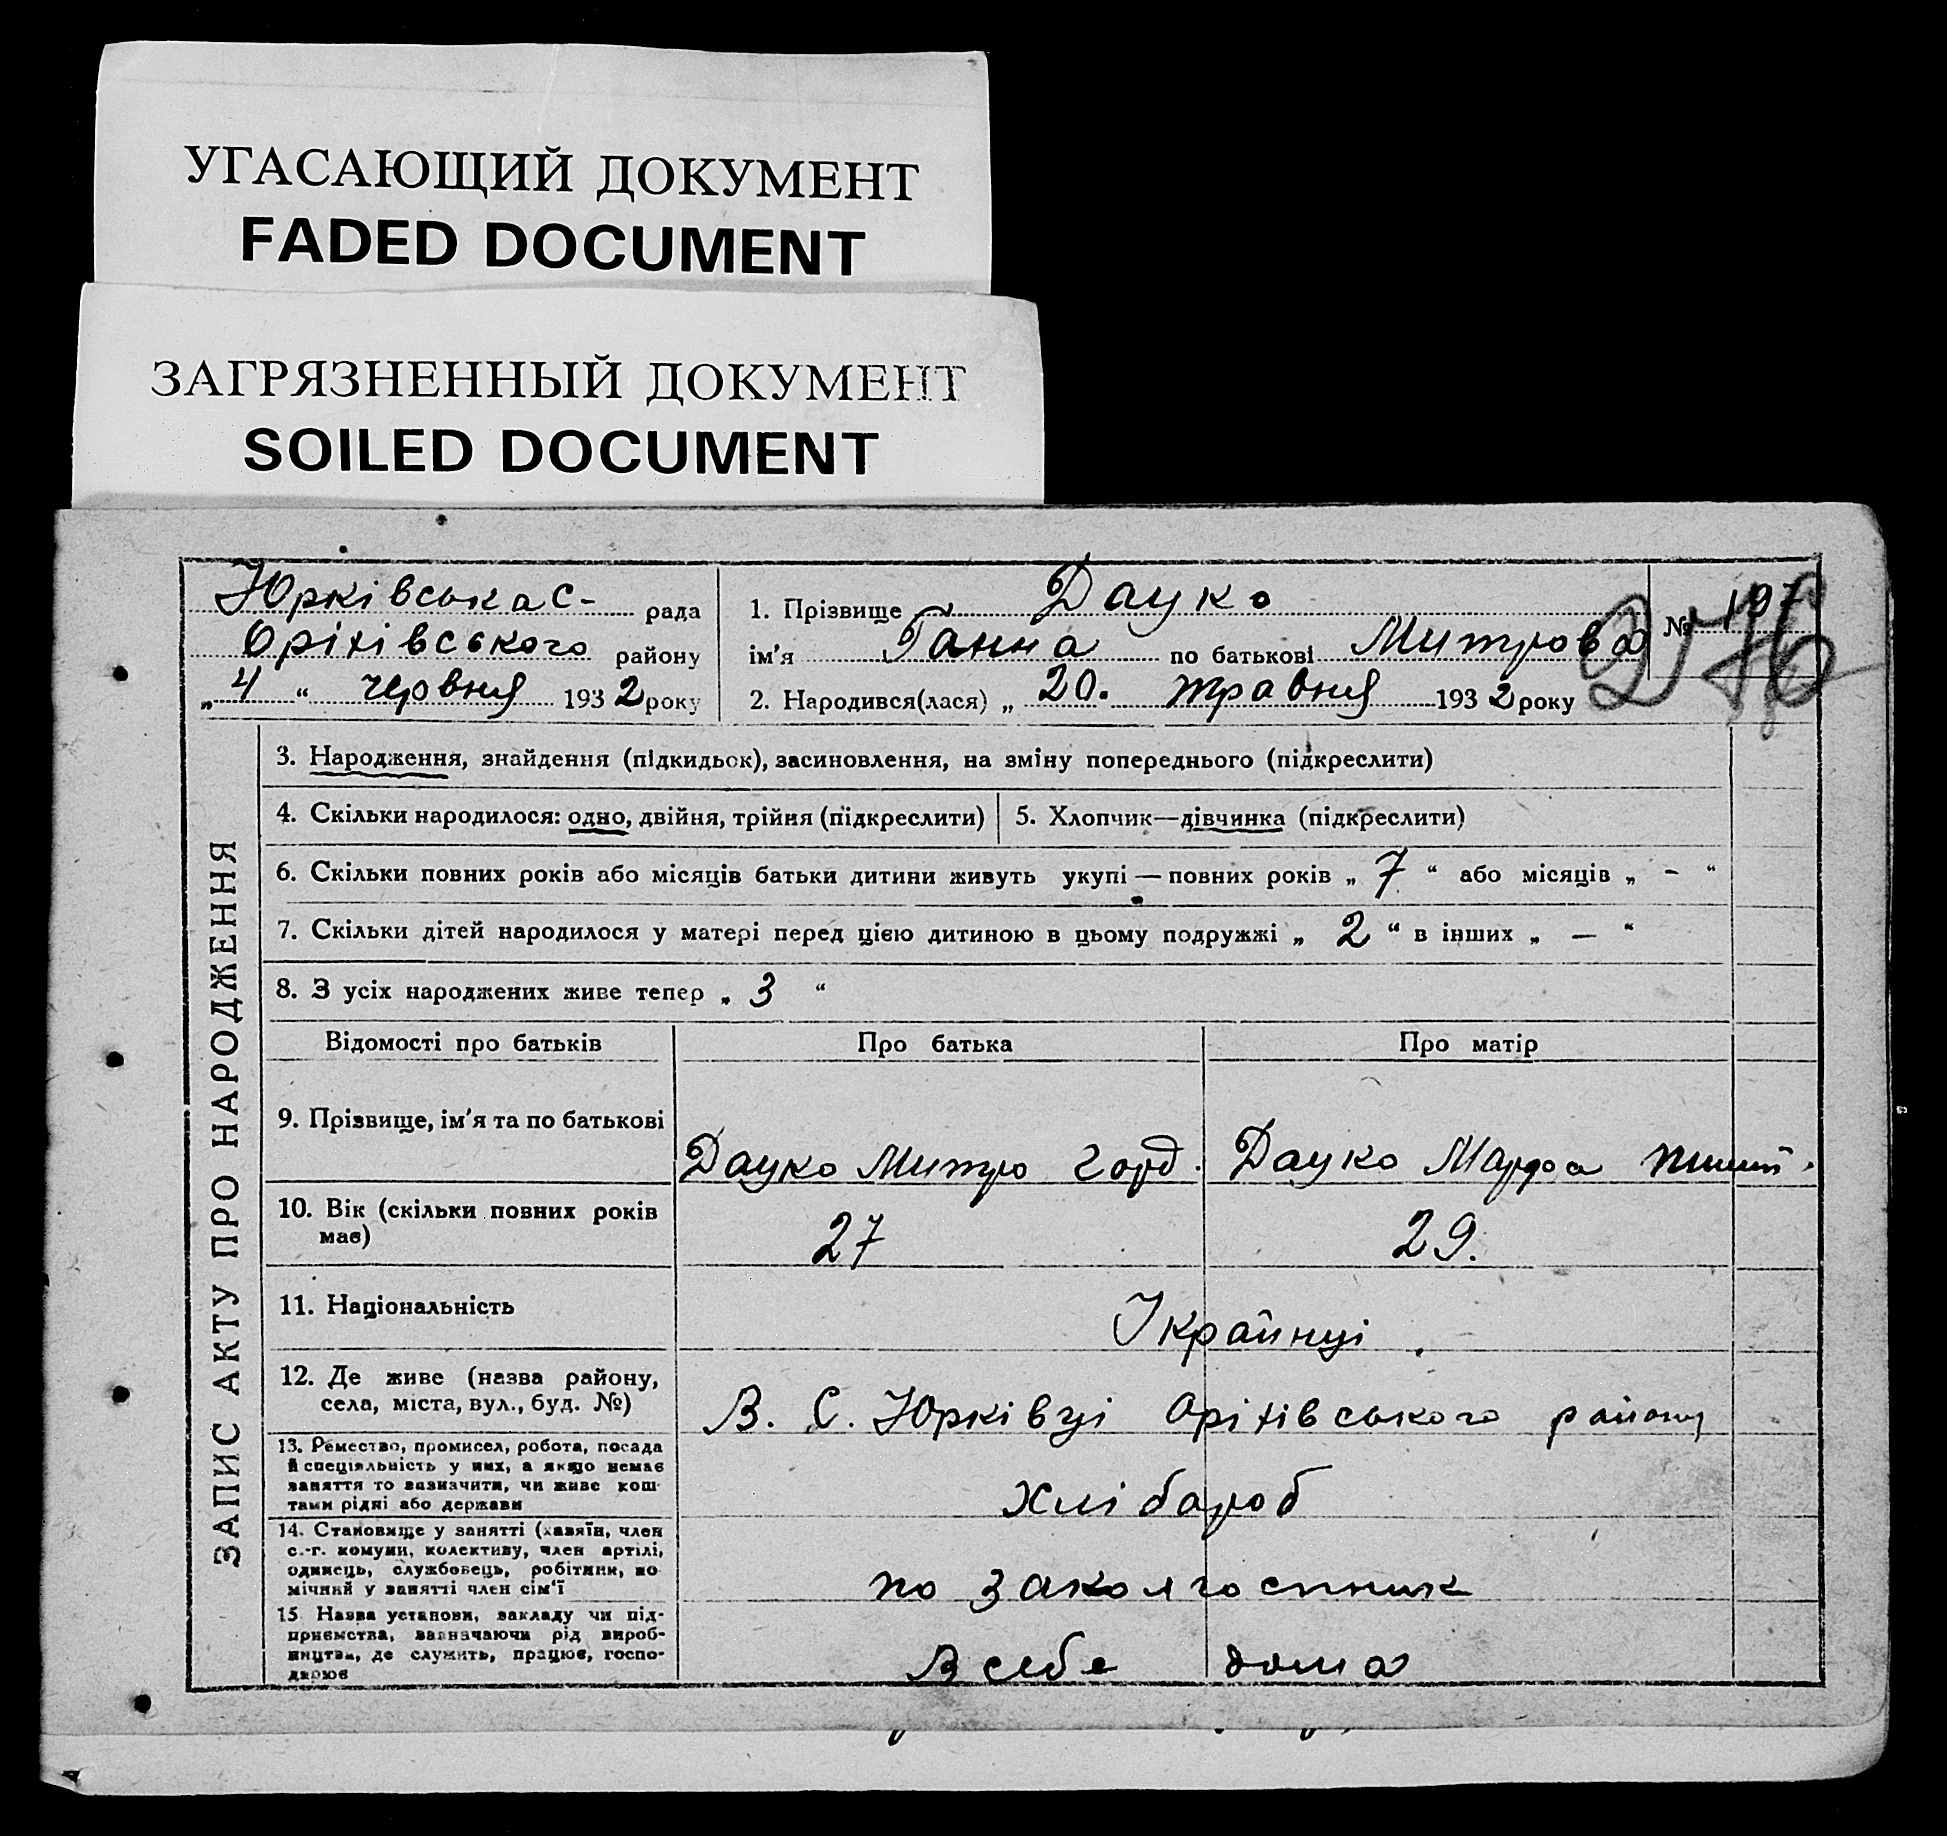 УГАСАЮЩИЙ ДОКУМЕНТ
FADED DOCUMENT
ЗАГРЯЗНЕННЫЙ ДОКУМЕНТ
SOILED DOCUMENT
Юрківська с- рада
Оріхівського району
„4“ червня 1932 року
1. Прізвище Дауко
ім'я Ганна по батькові Митрова
2. Народився(лася) „20. травня 1932 року
№ 197
276
ЗАПИС АКТУ ПРО НАРОДЖЕННЯ
3. Народження, знайдення (підкидьок), засиновлення, на зміну попереднього (підкреслити)
4. Скільки народилося: одно, двійня, трійня (підкреслити) 5. Хлопчик—дівчинка (підкреслити)
6. Скільки повних років або місяців батьки дитини живуть укупі — повних років „7“ або місяців „-“
7. Скільки дітей народилося у матері перед цією дитиною в цьому подружжі „2“ в інших „—“
8. З усіх народжених живе тепер „3“
Відомості про батьків Про батька Про матір
9. Прізвище, ім'я та по батькові Дауко Митро Горд. Дауко Марфа
10. Вік (скільки повних років
має) 27 29.
11. Національність Українці
12. Де живе (назва району,
села, міста, вул., буд. №) В. С. Юрківці Оріхівського району
13. Ремество, промисел, робота, посада
й спеціяльність у них, а якщо немає
заняття то зазначити, чи живе кош-
тами рідні або держави
Хлібароб
14. Становище у занятті (хазяїн, член
с.-г. комуни, колективу, член артілі,
одинець, службовець, робітник, по-
мічний у занятті член сім'ї
по заколгоспник
15 Назва установи, закладу чи під-
приємства, зазначаючи рід вироб-
ництва, де служить, працює, госпо-
дарює
В себе дома